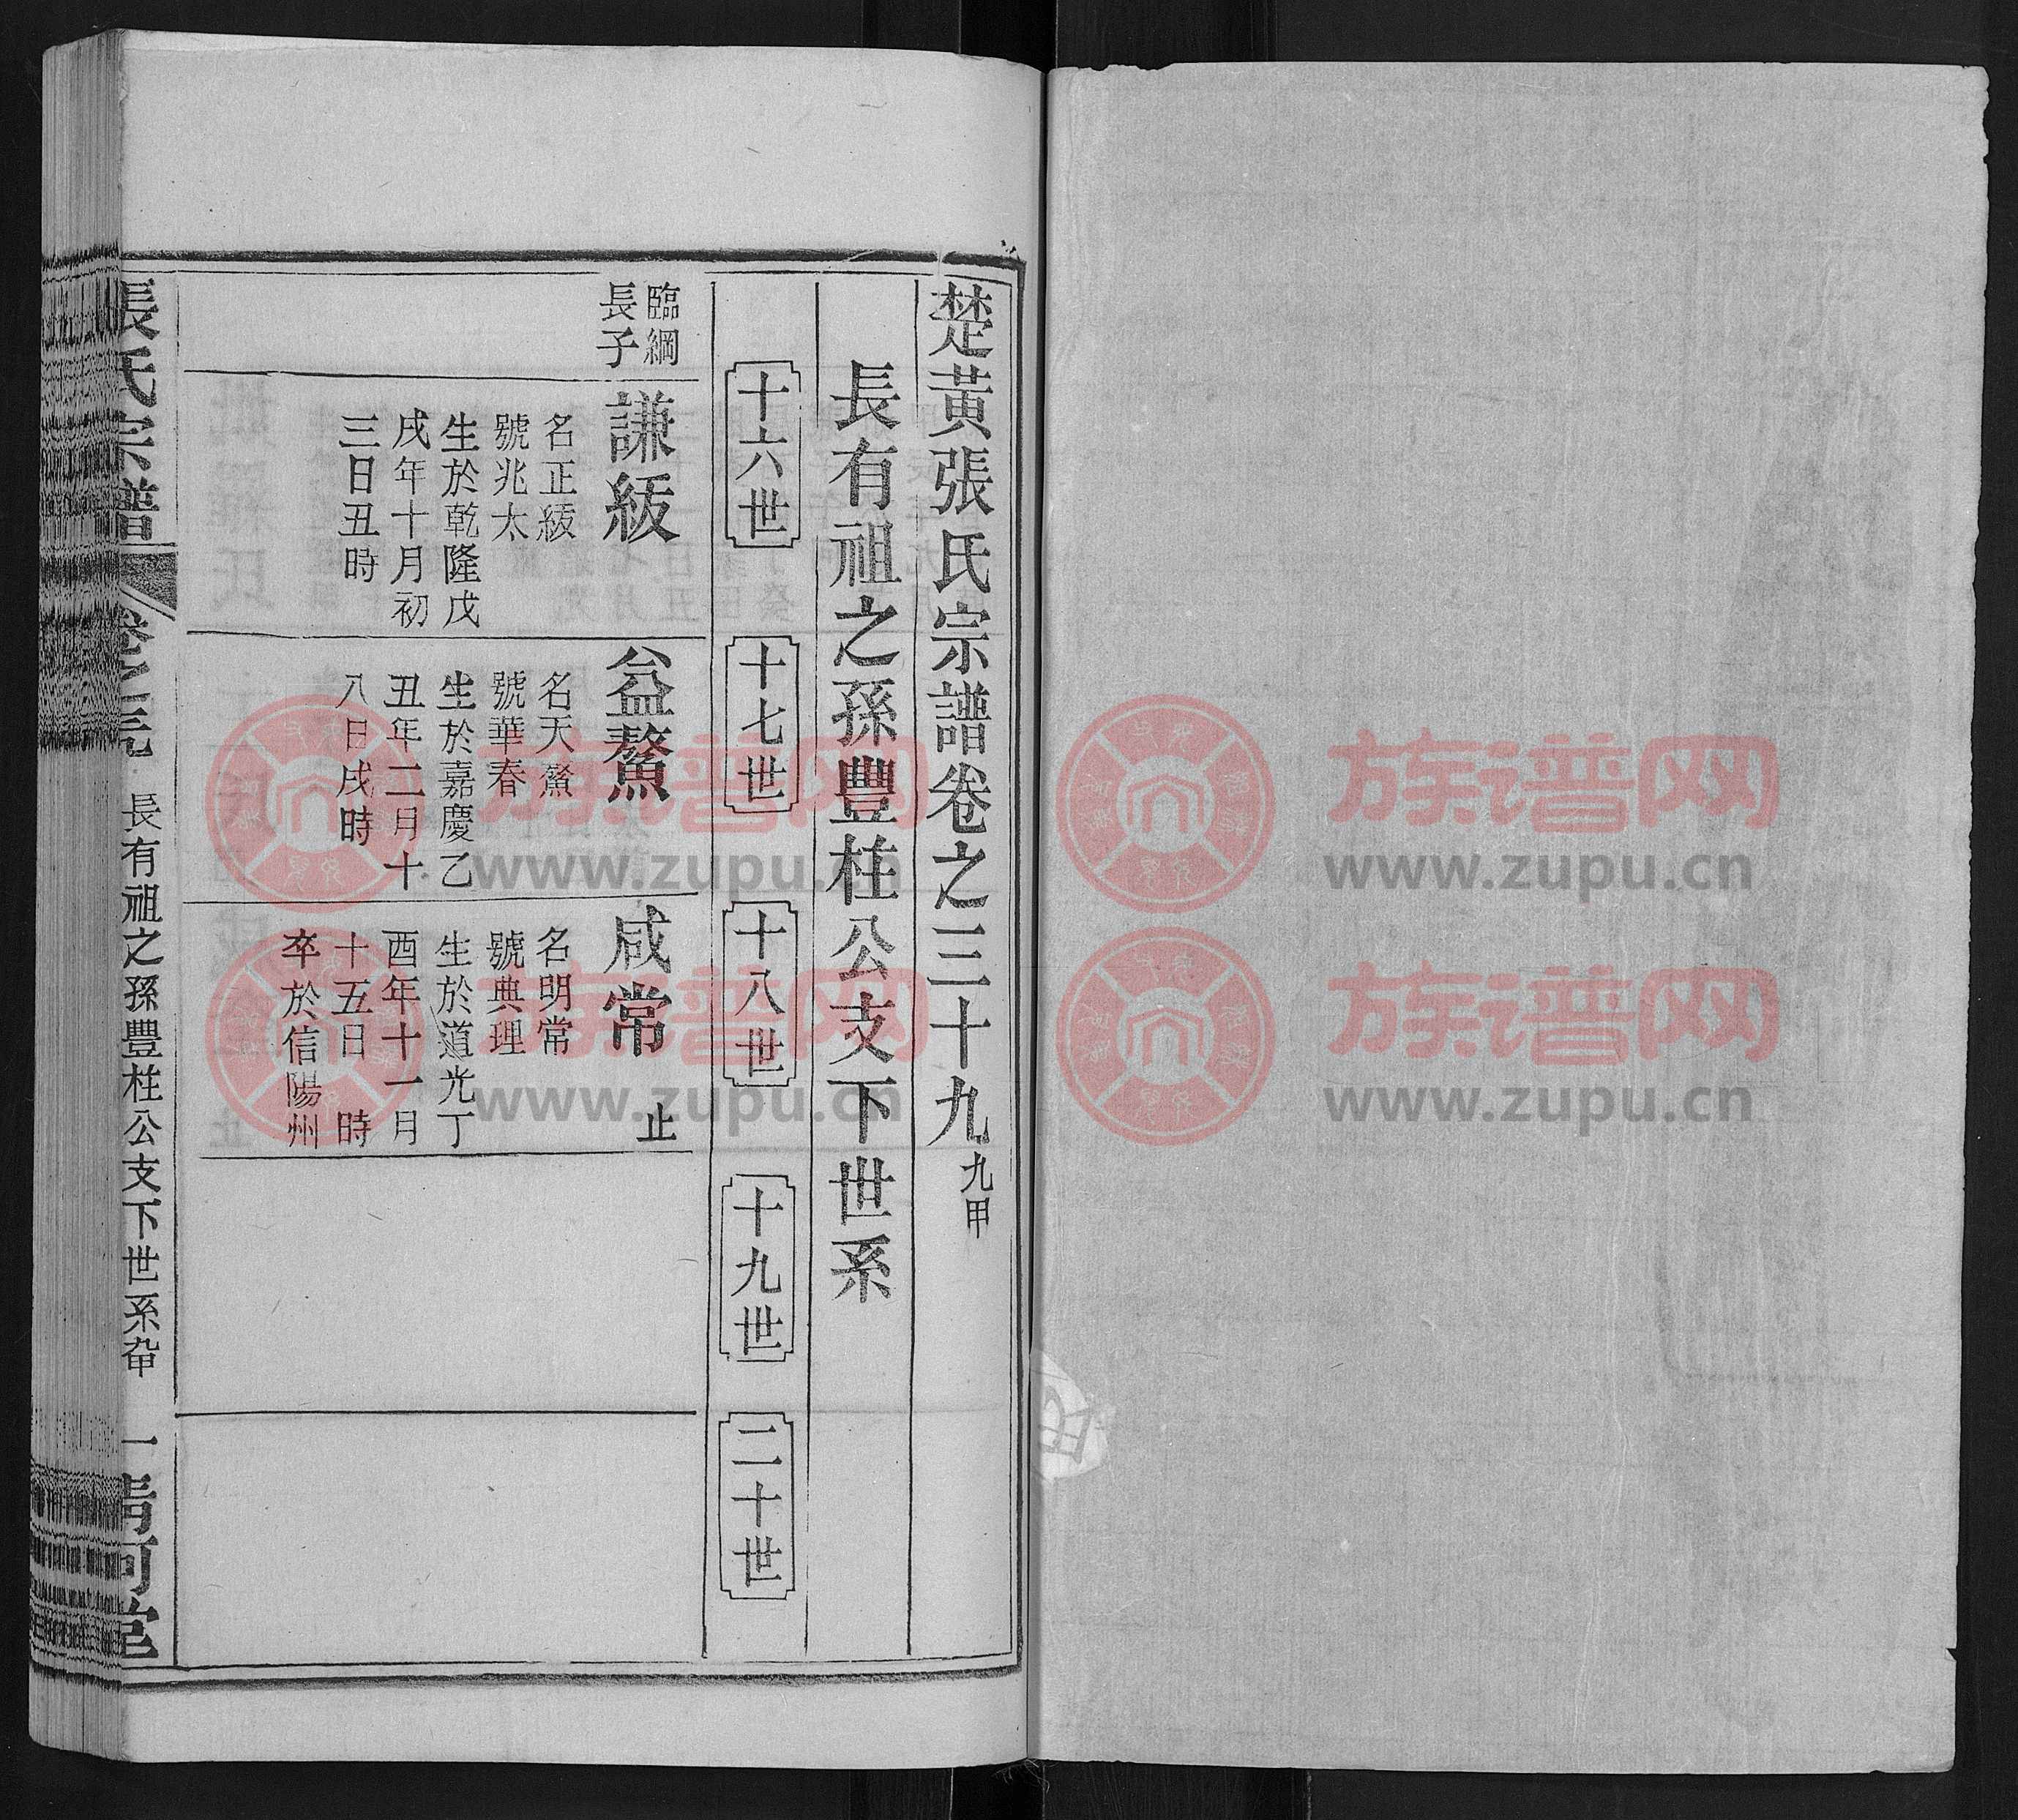 楚黃張氏宗譜卷之三十九 九甲
長有祖之孫豐柱公支下世系
十六世
十七世
十八世
十九世
二十世
臨綱
長子
謙紱
名正紱
號兆太
生於乾隆戊
戌年十月初
三日丑時
益鰲
名天鰲
號華春
生於嘉慶乙
丑年二月十
八日戌時
咸常 止
名明常
號典理
生於道光丁
酉年十一月
十五日 時
卒於信陽州
張氏宗譜
卷之三九
長有祖之孫豐柱公支下世系九甲
一
清河堂
族谱网
www.zupu.cn
族谱网
www.zupu.cn
族谱网
www.zupu.cn
族谱网
www.zupu.cn